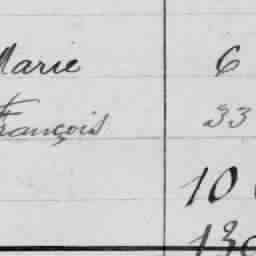 Marie 6
François 33
10
130